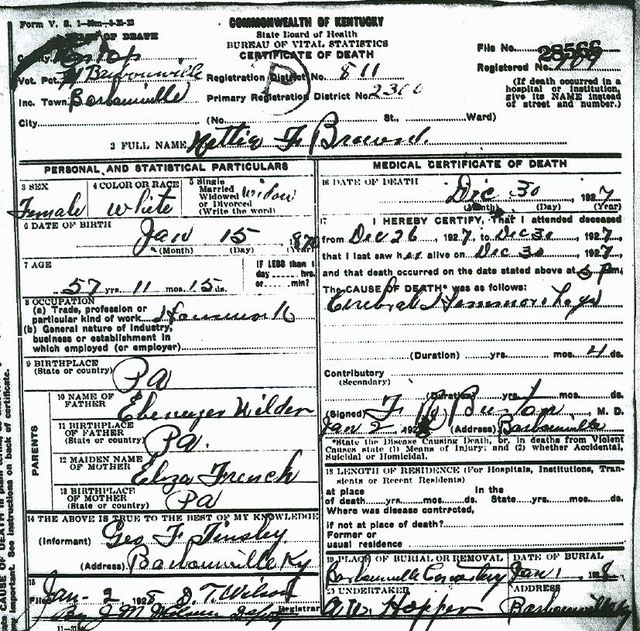 Form V. S. 1-50m-4-20-23
COMMONWEALTH OF KENTUCKY
State Board of Health
BUREAU OF VITAL STATISTICS
CERTIFICATE OF DEATH
OF DEATH
File No. 28566
Registered No.
(If death occurred in a hospital or institution, give its NAME instead of street and number.)
County
Vot. Pct. Barbourville
Registration District No. 811
Inc. Town Barbourville
Primary Registration District No. 2306
City (No. St., Ward)
2 FULL NAME Nettie F Brown.
PERSONAL AND STATISTICAL PARTICULARS
3 SEX Female
4 COLOR OR RACE White
5 Single Married Widowed or Divorced (Write the word) Widow
6 DATE OF BIRTH Jan 15 1870
(Month) (Day) (Year)
7 AGE
57 yrs. 11 mos. 15 ds.
IF LESS than 1 day hrs. or min.?
8 OCCUPATION
(a) Trade, profession or particular kind of work
(b) General nature of industry, business or establishment in which employed (or employer)
9 BIRTHPLACE
(State or country) Pa
PARENTS
10 NAME OF FATHER Ebenezer Wilder
11 BIRTHPLACE OF FATHER (State or country) Pa.
12 MAIDEN NAME OF MOTHER Eliza French
13 BIRTHPLACE OF MOTHER (State or country) Pa
14 THE ABOVE IS TRUE TO THE BEST OF MY KNOWLEDGE
(Informant) Geo F Tinsley
(Address) Barbourville Ky
15
Filed Jan- 2 1928 D. T. Wilson
Registrar
By J M
MEDICAL CERTIFICATE OF DEATH
16 DATE OF DEATH Dec 30 1927
(Month) (Day) (Year)
17 I HEREBY CERTIFY, that I attended deceased
from Dec 26 1927, to Dec 30 1927
that I last saw her alive on Dec 30 1927
and that death occurred on the date stated above at 5 Pm.
The CAUSE OF DEATH* was as follows:
Cerebral Hemmorhage
(Duration) yrs. mos. 4 ds.
Contributory
(Secondary)
(Duration) yrs. mos. ds.
(Signed) F R Burton M. D.
Jan 2 192 (Address) Barbourville
*State the Disease Causing Death, or, in deaths from Violent Causes state (1) Means of Injury; and (2) whether Accidental, Suicidal or Homicidal.
18 LENGTH OF RESIDENCE (For Hospitals, Institutions, Transients or Recent Residents)
at place of death yrs. mos. ds. In the State yrs. mos. ds.
Where was disease contracted,
if not at place of death?
Former or
usual residence
19 PLACE OF BURIAL OR REMOVAL
Barbourville Cemetery
DATE OF BURIAL
Jan 1 1928
20 UNDERTAKER
Hopper
ADDRESS
Barbourville Ky
CAUSE OF DEATH in plain terms
important. See instructions on back of certificate.